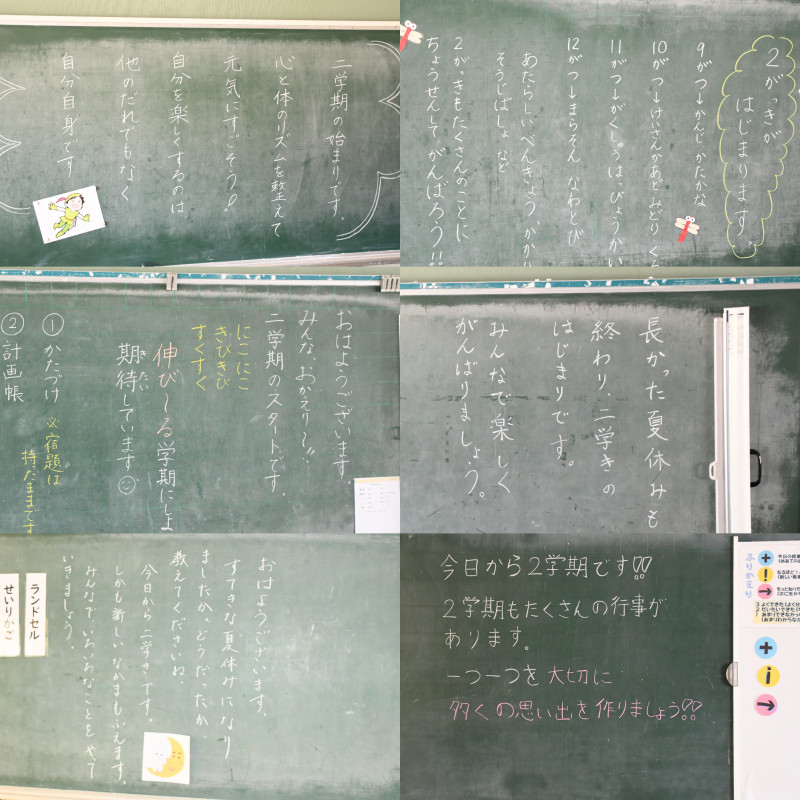 二学期の始まりです。
心と体のリズムを整えて
元気にすごそう!
自分を楽しくするのは
他のだれでもなく
自分自身です
2がっきが
はじまります。
9がつ→かんじ かたかな
10がつ→けいさんかあど みどり
11がつ→がくしゅうはっぴょうかい
12がつ→まらそん なわとび
あたらしいべんきょう、かかり
そうじばしょ など
2がっきもたくさんのことに
ちょうせんして がんばろう!!
おはようございます。
みんな、おかえり〜!!
二学期のスタートです。
にこにこ
きびきび
すくすく
伸び〜る学期にしよ
期待しています
きたい
①かたづけ ※宿題は
持ったままです
②計画帳
長かった夏休みも
終わり、二学きの
はじまりです。
みんなで楽しく
がんばりましょう。
ランドセル
せいりかご
おはようございます。
すてきな夏休みになり
ましたか。どうだったか、
教えてくださいね
今日から二学きです。
しかも新しいなかまもふえます。
みんなでいろいろなことをやって
いきましょう。
今日から2学期です!!
2学期もたくさんの行事が
あります。
一つ一つを大切に
多くの思い出を作りましょう!!
ふりかえり